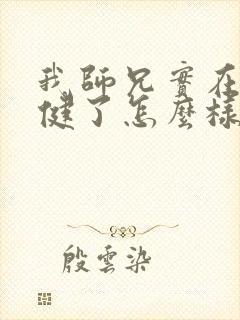 我師兄實在
健了怎麼樣
殷雲染